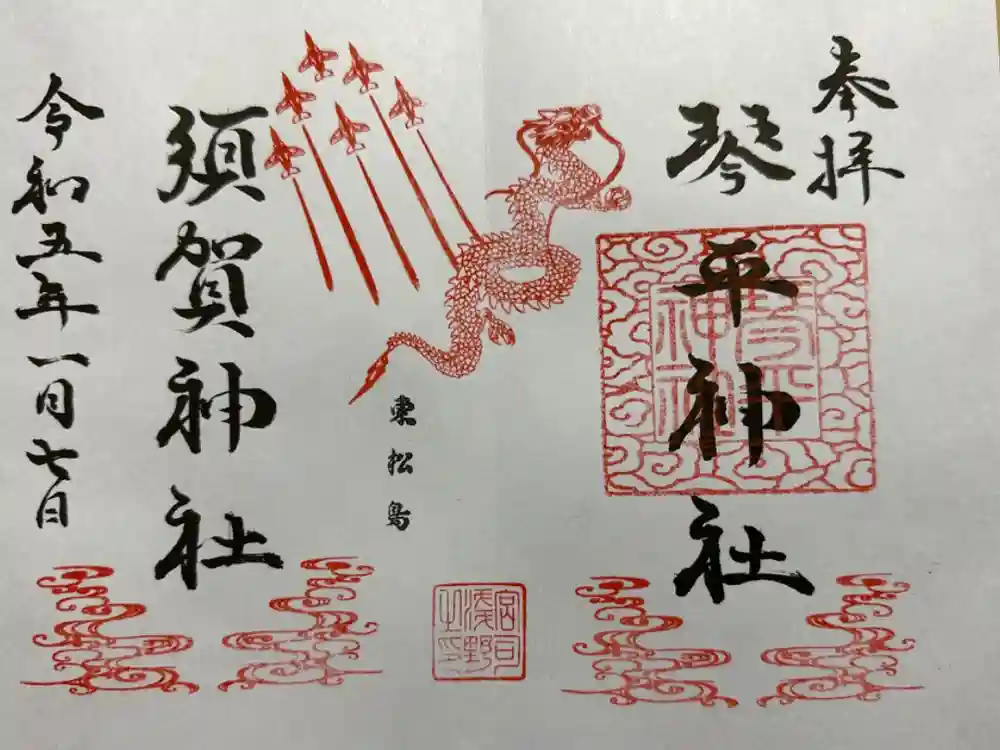 奉拝
琴平神社
東松島
須賀神社
令和五年一月七日
宮司
浅野
之印